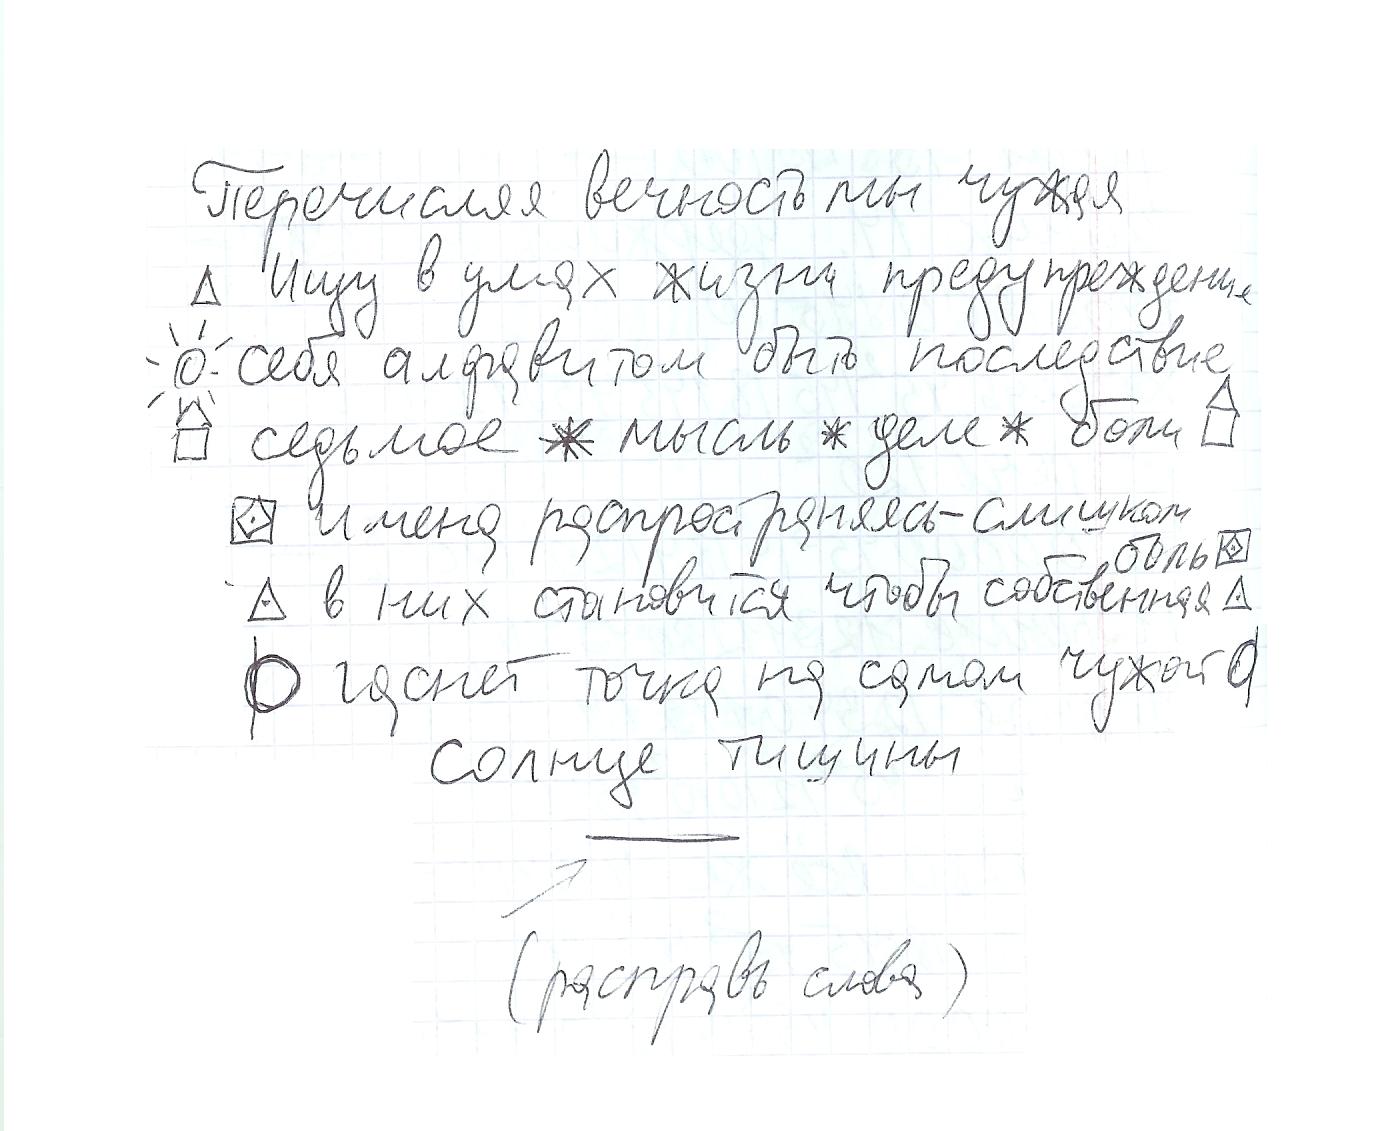 Перечисляя вечность мы чужая
Ищу в умах жизни предупреждение
себя алфавитом быть последствие
седьмое * мысль * деле * боли
имена распространяясь-слишком
боль
в них становится чтобы собственная
гаснет точка на самом чужой
солнце тишины
(расправь слова)